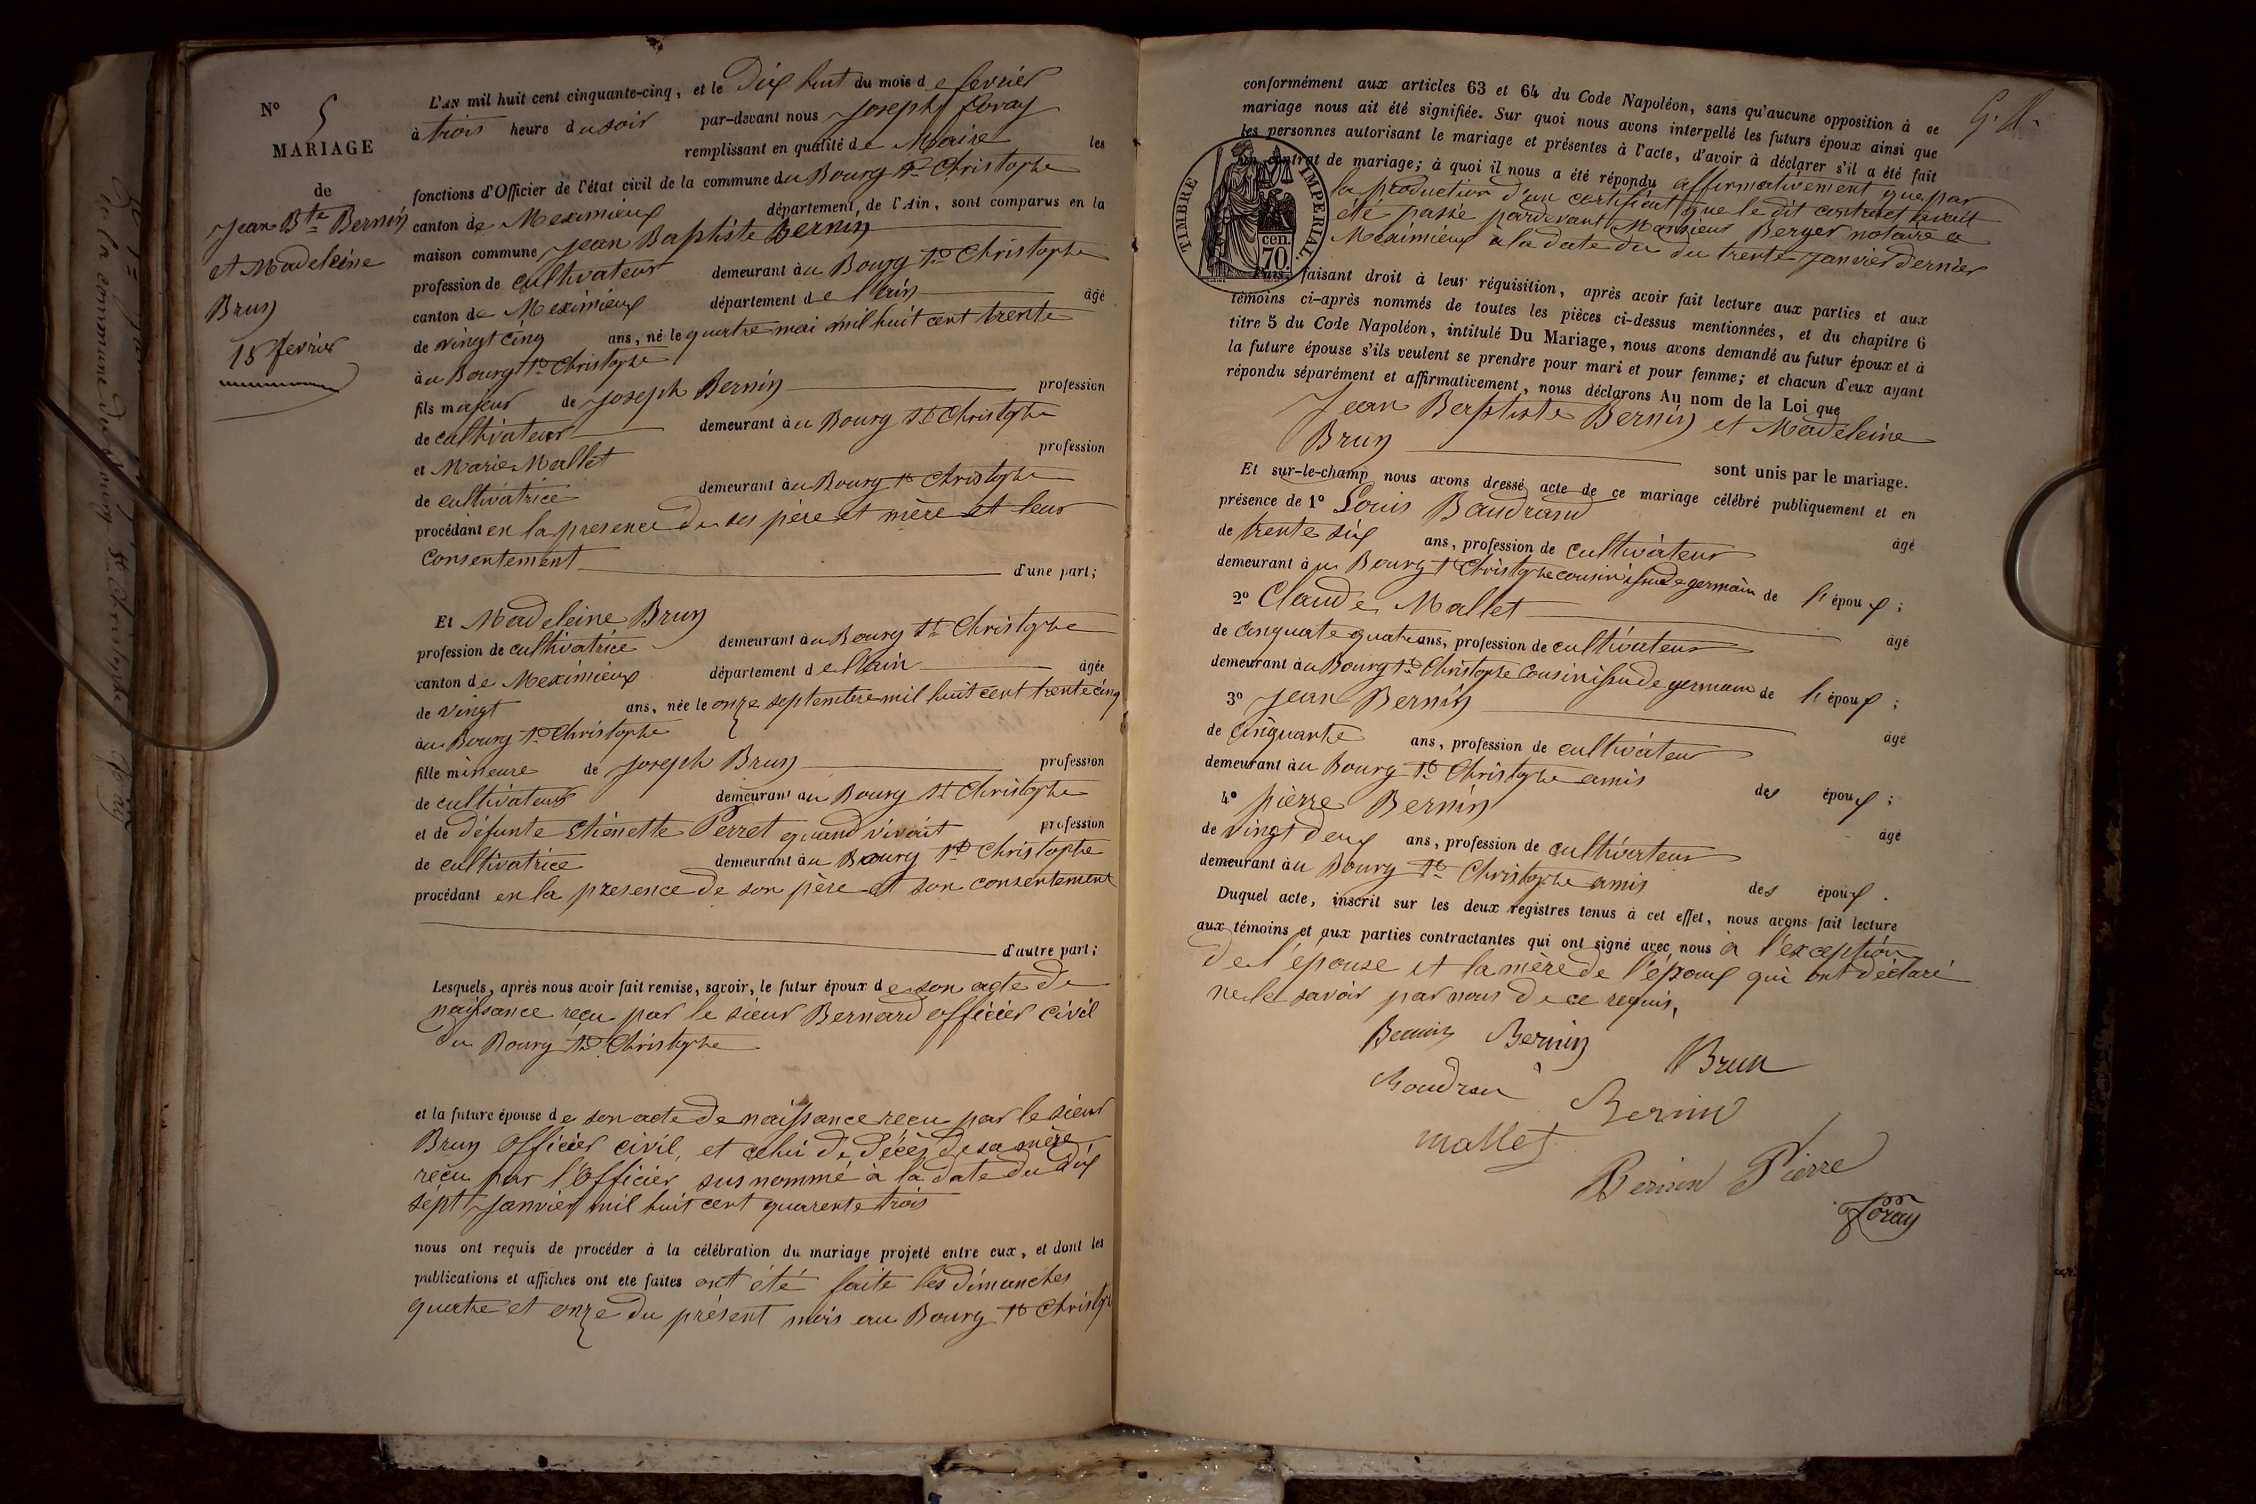 N° 5
MARIAGE
de
Jean Bte Bernin
et Madeleine
Brun
18 fevrier
L'AN mil huit cent cinquante-cinq, et le dix huit du mois de fevrier
à trois heure du soir par-devant nous Joseph Foray
remplissant en qualité de Maire les
fonctions d'Officier de l'état civil de la commune du Bourg St Christophe
canton de Meximieux département, de l'Ain, sont comparus en la
maison commune Jean Baptiste Bernin
profession de cultivateur demeurant à u Bourg St Christophe
canton de Meximieux département de l'ain âgé
de vingt cinq ans, né le quatre mai mil huit cent trente
à u Bourg St Christophe
fils majeur de Joseph Bernin profession
de cultivateur demeurant à u Bourg St Christophe
et Marie Mallet profession
de cultivatrice demeurant à u Bourg St Christophe
procédant en la presence de ses père et mère et leur
consentement d'une part;
Et Madeleine Brun
profession de cultivatrice demeurant à u Bourg St Christophe
canton de Meximieux département de l'ain âgée
de vingt ans, née le onze septembre mil huit cent trente cinq
à u Bourg St Christophe
fille mineure de Joseph Brun profession
de cultivateur demeurant au Bourg St Christophe
et de défunte Etiénette Perret quand vivait profession
de cultivatrice demeurant à u Bourg St Christophe
procédant en la presence de son père et son consentement
d'autre part;
Lesquels, après nous avoir fait remise, savoir, le futur époux de son acte de
naissance reçu par le sieur Bernard officier civil
du Bourg St Christophe
et la future épouse de son acte de naissance reçu par le sieur
Brun officier civil, et celui de décès de sa mère
reçu par l'officier sus nommé à la date du dix
sept Janvier mil huit cent quarente trois
nous ont requis de procéder à la célébration du mariage projeté entre eux, et dont les
publications et affiches ont été faites ont été faite les dimanches
quatre et onze du présent mois au Bourg St Christophe
conformément aux articles 63 et 64 du Code Napoléon, sans qu'aucune opposition à ce
mariage nous ait été signifiée. Sur quoi nous avons interpellé les futurs époux ainsi que
les personnes autorisant le mariage et présentes à l'acte, d'avoir à déclarer s'il a été fait
un contrat de mariage; à quoi il nous a été répondu affirmativement que par
la production d'un certificat que le dit contract avait
été passé pardevant Monsieur Berger notaire a
Meximieux à la date du du trente Janvier dernier
TIMBRE IMPÉRIAL.
cen.
70.
Puis, faisant droit à leur réquisition, après avoir fait lecture aux parties et aux
témoins ci-après nommés de toutes les pièces ci-dessus mentionnées, et du chapitre 6
titre 5 du Code Napoléon, intitulé Du Mariage, nous avons demandé au futur époux et à
la future épouse s'ils veulent se prendre pour mari et pour femme; et chacun d'eux ayant
répondu séparément et affirmativement, nous déclarons Au nom de la Loi que
Jean Baptiste Bernin et Madeleine
Brun sont unis par le mariage.
Et sur-le-champ nous avons dressé acte de ce mariage célébré publiquement et en
présence de 1° Louis Baudrand âgé
de trente six ans, profession de cultivateur
demeurant à u Bourg St Christophe cousin issu de germain de l'époux;
2° Claude Mallet âgé
de cinquante quatre ans, profession de cultivateur
demeurant à u Bourg St Christophe cousin issu de germain de l'époux;
3° Jean Bernin âgé
de cinquante ans, profession de cultivateur
demeurant à u Bourg St Christophe amis des époux;
4° pierre Bernin âgé
de vingt deux ans, profession de cultivateur
demeurant à u Bourg St Christophe amis des époux.
Duquel acte, inscrit sur les deux registres tenus à cet effet, nous avons fait lecture
aux témoins et aux parties contractantes qui ont signé avec nous à l'exception
de l'épouse et la mère de l'époux qui ont déclaré
ne le savoir par nous de ce requis,
Bernin Bernin Brun
Boudran Bernin
Mallet
Bernin Pierre
Foray